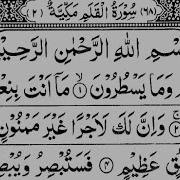 (٦٨) سُوْرَةُ الْقَلَمِ مَكِّيَّةٌ (٢)
سْمِ اللهِ الرَّحْمٰنِ الرَّحِيْ
وَمَا يَسْطُرُوْنَ ۝١ مَآ اَنْتَ بِنِعْ
۝٢ وَاِنَّ لَكَ لَاَجْرًا غَيْرَ مَمْنُوْنٍ
قٍ عَظِيْمٍ ۝٤ فَسَتُبْصِرُ وَيُبْصِ